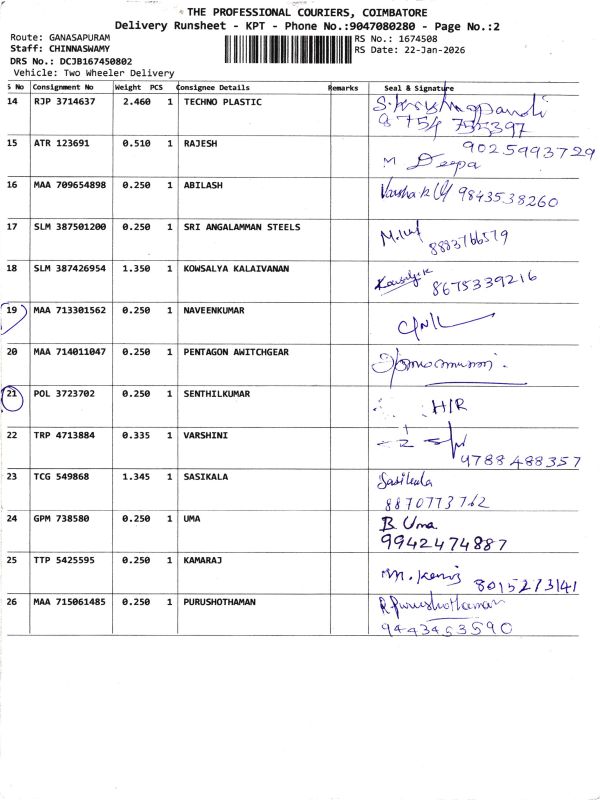 THE PROFESSIONAL COURIERS, COIMBATORE
Delivery Runsheet - KPT - Phone No.:9047080280 - Page No.:2
Route: GANASAPURAM RS No.: 1674508
Staff: CHINNASWAMY RS Date: 22-Jan-2026
DRS No.: DCJB167450802
Vehicle: Two Wheeler Delivery
S No Consignment No Weight PCS Consignee Details Remarks Seal & Signature
14 RJP 3714637 2.460 1 TECHNO PLASTIC
15 ATR 123691 0.510 1 RAJESH 9025993729
M Deepa
16 MAA 709654898 0.250 1 ABILASH 9843538260
17 SLM 387501200 0.250 1 SRI ANGALAMMAN STEELS
8883766579
18 SLM 387426954 1.350 1 KOWSALYA KALAIVANAN
8675339216
19 MAA 713301562 0.250 1 NAVEENKUMAR
20 MAA 714011047 0.250 1 PENTAGON AWITCHGEAR
21 POL 3723702 0.250 1 SENTHILKUMAR H/R
22 TRP 4713884 0.335 1 VARSHINI
9788488357
23 TCG 549868 1.345 1 SASIKALA Sasikala
8870773762
24 GPM 738580 0.250 1 UMA B. Uma
9942474887
25 TTP 5425595 0.250 1 KAMARAJ
8015273141
26 MAA 715061485 0.250 1 PURUSHOTHAMAN R.Purushothaman
9443453590